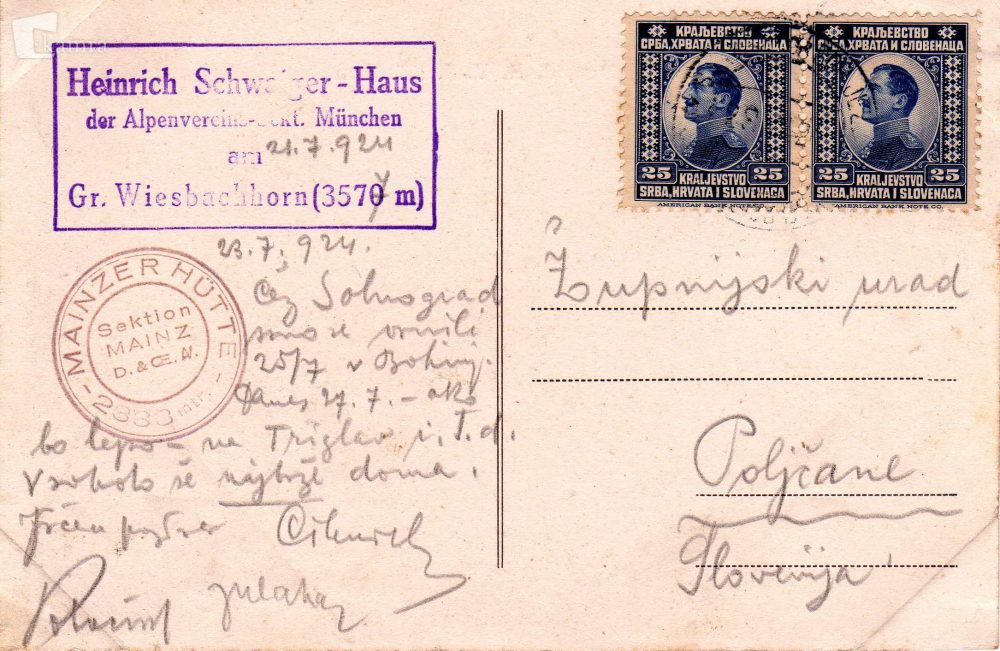 Heinrich Schwaiger-Haus
der Alpenvereins-Sekt. München
am 21.7.924
Gr. Wiesbachhorn (3570 m)
MAINZER HÜTTE
Sektion
MAINZ
D. & Œ. A.V.
23.7.924.
Čez Solnograd
smo se vrnili
25/7 v Bohinj.
Danes 27.7. - ako
bo lepo - na Triglav i. t. d.
V soboto še najbrže doma.
КРАЉЕВСТВО
СРБА, ХРВАТА И СЛОВЕНАЦА
25 KRALJEVSTVO 25
SRBA, HRVATA I SLOVENACA
AMERICAN BANK NOTE CO.
КРАЉЕВСТВО
СРБА, ХРВАТА И СЛОВЕНАЦА
25 KRALJEVSTVO 25
SRBA, HRVATA I SLOVENACA
AMERICAN BANK NOTE CO.
Župnijski urad
Poljčane
Slovenija